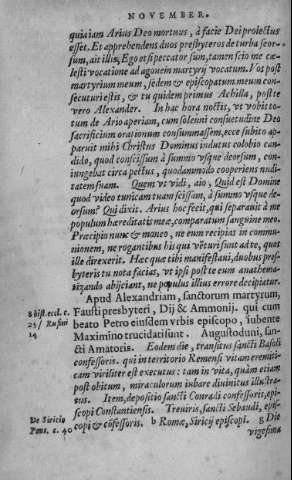 NOVEMBER.
quia iam Arius Deo mortuus, à facie Dei proiectus
esset. Et apprehendens duos presbyteros de turba seor-
sum, ait illis, Ego et si peccator sum, tamen scio me cæ-
lesti vocatione ad agonem martyrij vocatum. Vos post
martyrium meum, sedem & episcopatum meum con-
secuturi estis, & tu quidem primus Achilla, post te
vero Alexander. In hac hora noctis, ut vobis to-
tum de Ario aperiam, cum solenni consuetudine Deo
sacrificium orationum consummassem, ecce subito ap-
paruit mihi Christus Dominus indutus colobio can-
dido, quod conscissum à summo vsque deorsum, con-
iungebat circa pectus, quodammodo cooperiens nudi-
tatem suam. Quem vt vidi, aio, Quid est Domine
quod video tunicam tuam scissam, à summo vsque de-
orsum? Qui dixit. Arius hoc fecit, qui separauit à me
populum hæreditatis meæ, comparatum sanguine meo.
Præcipio nunc & moneo, ne eum recipias in commu-
nionem, ne rogantibus his qui vēturi sunt ad te, quos
ille direxerit. Hæc quæ tibi manifestaui, duobus pres-
byteris tu nota facias, vt ipsi post te eum anathema-
tizando abijciant, ne populus illius errore decipiatur.
Apud Alexandriam, sanctorum martyrum,
8 hist. eccl. c. Fausti presbyteri, Dij & Ammonij. qui cum
25 / Rufini beato Petro eiusdem vrbis episcopo, iubente
14 Maximino trucidati sunt. Augustoduni, san-
cti Amatoris. Eodem die, transitus sancti Basoli
confessoris. qui in territorio Remensi vitam eremiti-
cam viriliter est executus: tam in vita, quàm etiam
post obitum, miraculorum iubare diuinitus illustra-
tus. Item, depositio sancti Conradi confessoris, epi-
scopi Constantiensis. Treuiris, sancti Sebaudi, epi-
De Siricio scopi & cōfessoris. b Romæ, Siricij episcopi. g Die
Pont. c. 40 vigesima